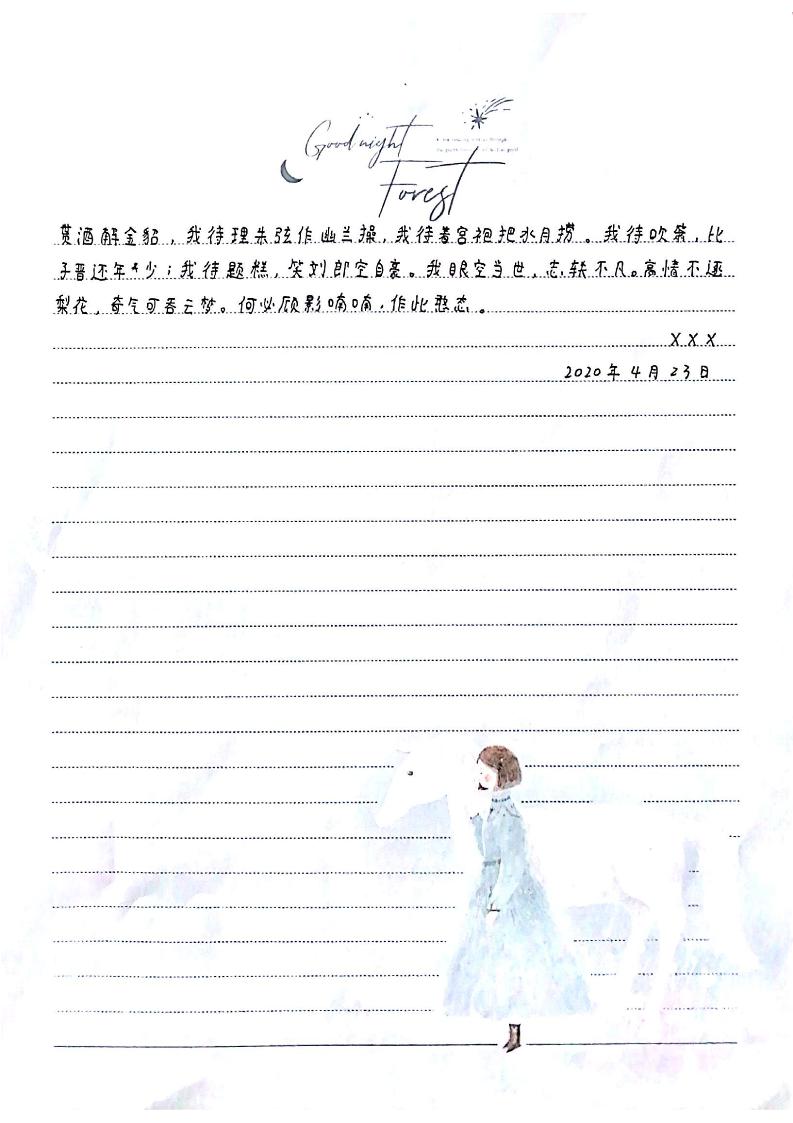 Good night
Forest
贳酒解金貂，我待理朱弦作幽兰操，我待着宫袍把水月捞。我待吹笙，比
子晋还年少；我待题糕，笑刘郎空自豪。我眼空当世，志轶不凡。高情不逐
梨花，奇气可吞云梦。何必顾影喃喃，作此憨态。
X X X
2020年4月23日